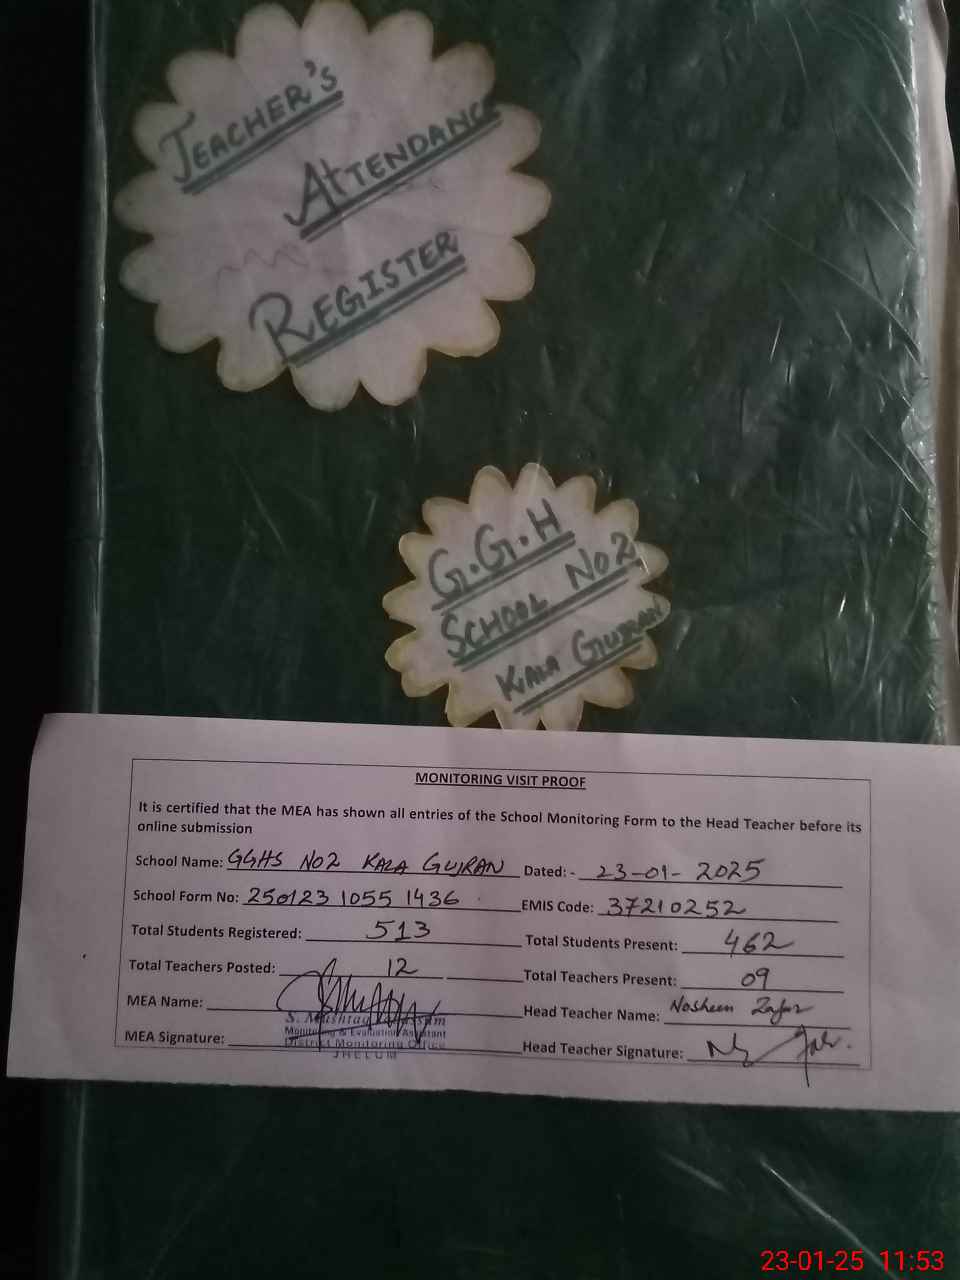 TEACHER'S
ATTENDANCE
REGISTER
G.G.H
SCHOOL NO 2
KALA GUJRAN
MONITORING VISIT PROOF
It is certified that the MEA has shown all entries of the School Monitoring Form to the Head Teacher before its
online submission
School Name: GGHS NO2 KALA GUJRAN Dated: - 23-01-2025
School Form No: 250123 1055 1436 EMIS Code: 37210252
Total Students Registered: 513 Total Students Present: 462
Total Teachers Posted: 12 Total Teachers Present: 09
MEA Name: Head Teacher Name: Nosheen Zafar
S. Mushtaq
Monitoring & Evaluation Assistant
MEA Signature: Head Teacher Signature:
District Monitoring Office
JHELUM
23-01-25 11:53